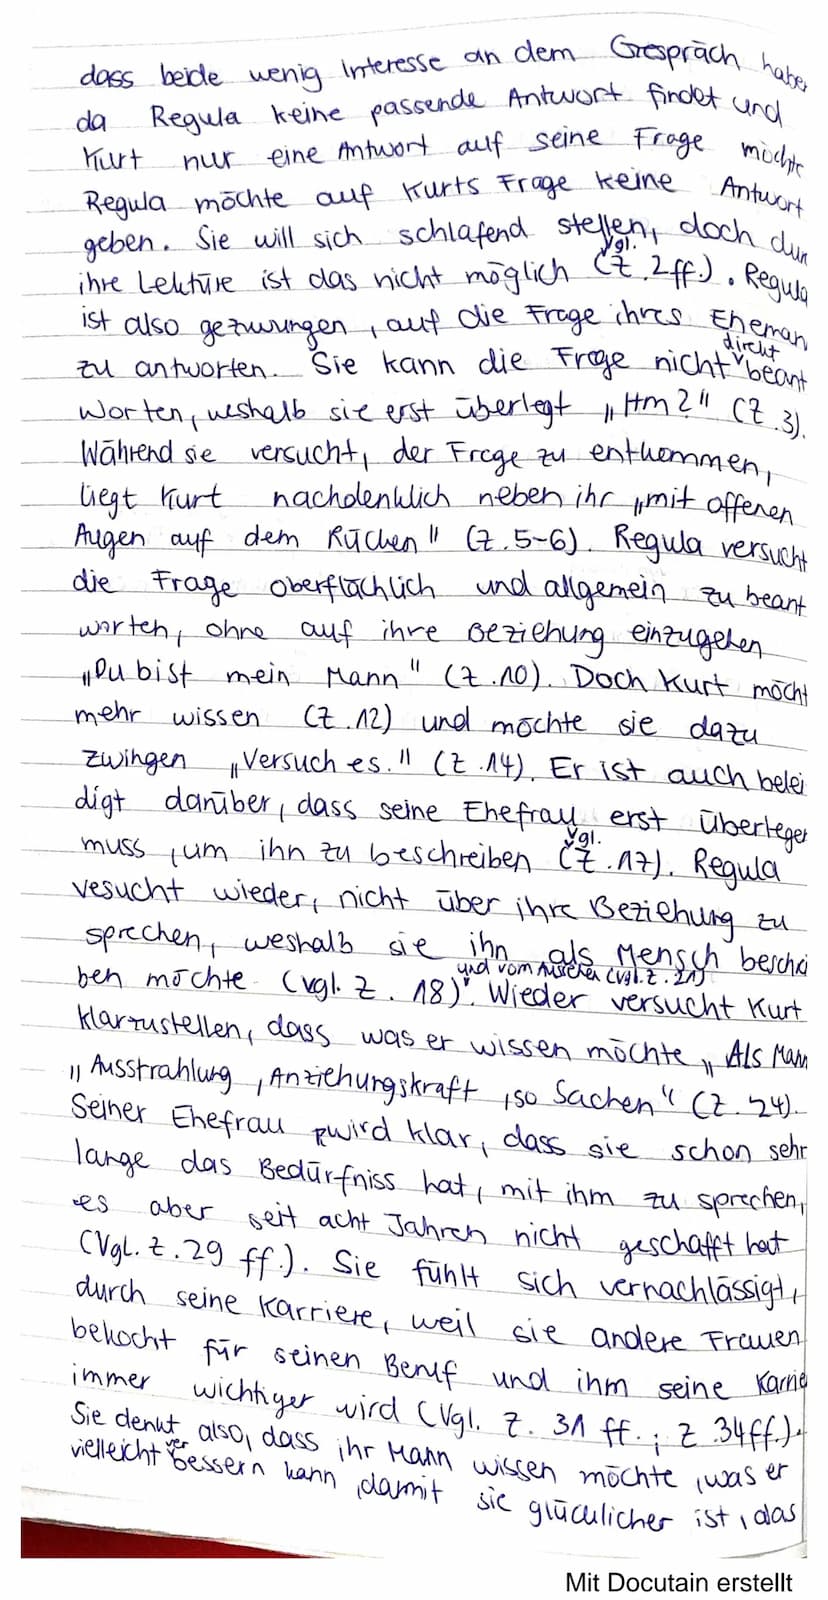 dass beide wenig Interesse an dem Gespräch habe
da Regula keine passende Antwort findet und
Kurt nur eine Antwort auf seine Frage möchte
Regula möchte auf Kurts Frage keine Antwort
geben. Sie will sich schlafend stellen, doch dur
ihre Lektüre ist das nicht möglich (vgl. Z. 2ff.). Regula
ist also gezwungen, auf die Frage ihres Eheman
zu antworten. Sie kann die Frage nicht direkt beant
worten, weshalb sie erst überlegt „Hm?" (Z.3).
Während sie versucht, der Frage zu entkommen,
liegt Kurt nachdenklich neben ihr „mit offenen
Augen auf dem Rücken" (Z.5-6). Regula versucht
die Frage oberflächlich und allgemein zu beant
worten, ohne auf ihre Beziehung einzugehen
„Du bist mein Mann" (Z.10). Doch Kurt möcht
mehr wissen (Z.12) und möchte sie dazu
zwingen „Versuch es." (Z.14). Er ist auch belei
digt darüber, dass seine Ehefrau erst überlegen
muss, um ihn zu beschreiben (vgl. Z.17). Regula
vesucht wieder, nicht über ihre Beziehung zu
sprechen, weshalb sie ihn als Mensch beschrei
ben möchte (vgl. Z. 18) und vom Äuseren (vgl. Z. 21). Wieder versucht Kurt
klarzustellen, dass was er wissen möchte „Als Mann
„Ausstrahlung, Anziehungskraft, so Sachen" (Z. 24).
Seiner Ehefrau wird klar, dass sie schon sehr
lange das Bedürfniss hat, mit ihm zu sprechen,
es aber seit acht Jahren nicht geschafft hat
(Vgl. Z. 29 ff.). Sie fühlt sich vernachlässigt,
durch seine Karriere, weil sie andere Frauen
bekocht für seinen Beruf und ihm seine Karrie
immer wichtiger wird (Vgl. Z. 31 ff.; Z 34ff.).
Sie denkt also, dass ihr Mann wissen möchte, was er
vielleicht verbessern kann, damit sie glücklicher ist, das
Mit Docutain erstellt